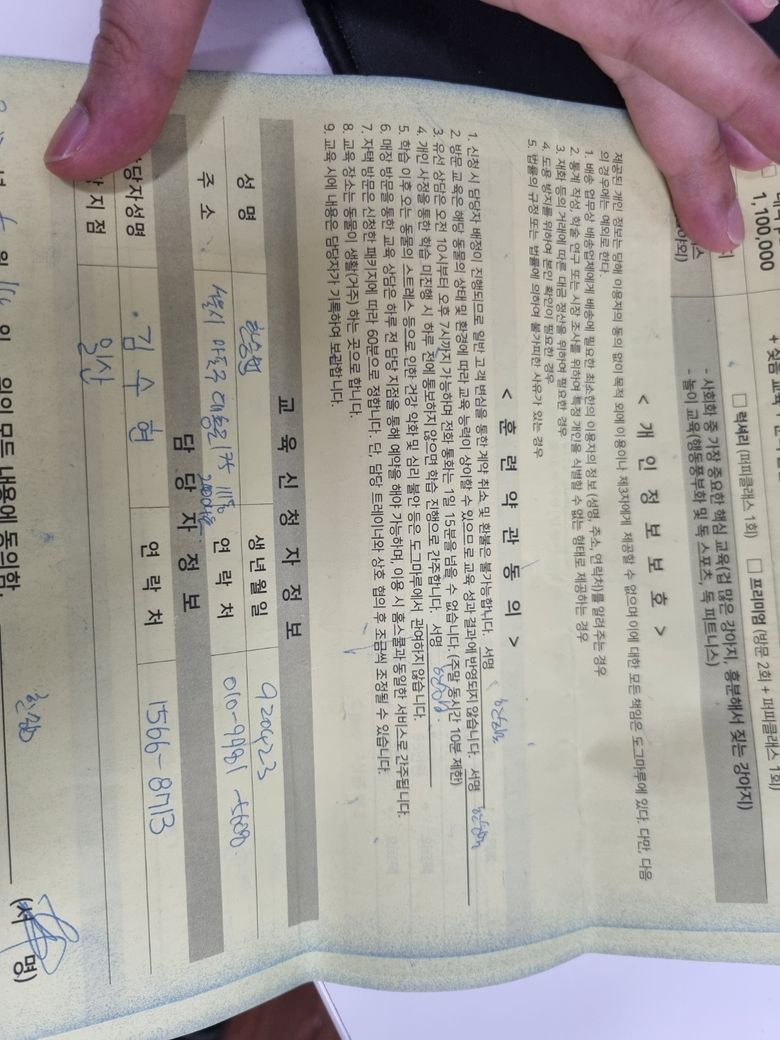 1,100,000
+ 
□ 럭셔리 (퍼피클래스 1회) □ 프리미엄 (방문 2회 + 퍼피클래스 1회)
- 사회화 중 가장 중요한 핵심 교육(겁 많은 강아지, 흥분해서 짖는 강아지)
- 놀이 교육(행동풍부화 및 독 스포츠, 독 피트니스)
< 개 인 정 보 보 호 >
제공된 개인 정보는 당해 이용자의 동의 없이 목적 외에 이용이나 제3자에게 제공할 수 없으며 이에 대한 모든 책임은 도그마루에 있다. 다만, 다음
의 경우에는 예외로 한다.
1. 배송 업무상 배송업체에게 배송에 필요한 최소한의 이용자의 정보 (성명, 주소, 연락처)를 알려 주는 경우
2. 통계 작성 학술 연구 또는 시장 조사를 위하여 특정 개인을 식별할 수 없는 형태로 제공하는 경우
3. 재화 등의 거래에 따른 대금 정산을 위하여 필요한 경우
4. 도용 방지를 위하여 본인 확인이 필요한 경우
5. 법률의 규정 또는 법률에 의하여 불가피한 사유가 있는 경우
< 훈 련 약 관 동 의 >
1. 신청 시 담당자 배정이 진행되므로 일반 고객 변심을 통한 계약 취소 및 환불은 불가능합니다. 서명
2. 방문 교육은 해당 동물의 상태 및 환경에 따라 교육 능력이 상이할 수 있으므로 교육 성과 결과에 반영되지 않습니다. 서명
3. 유선 상담은 오전 10시부터 오후 7시까지 가능하며 전화 통화는 1일 15분을 넘을 수 없습니다. (주말 동시간 10분 제한)
4. 개인 사정을 통한 학습 미진행 시 하루 전에 통보하지 않으면 학습 진행으로 간주합니다. 서명
5. 학습 이후 오는 동물의 스트레스 등으로 인한 건강 악화 및 심리 불안 등은 도그마루에서 관여하지 않습니다.
6. 매장 방문을 통한 교육 상담은 하루 전 담당 지점을 통해 예약을 해야 가능하며, 이용 시 홈스쿨과 동일한 서비스로 간주됩니다.
7. 자택 방문은 신청한 패키지에 따라 60분으로 정합니다. 단, 담당 트레이너와 상호 협의 후 조금씩 조정될 수 있습니다.
8. 교육 장소는 동물이 생활(거주) 하는 곳으로 합니다.
9. 교육 시에 내용은 담당자가 기록하여 보관합니다.
교 육 신 청 자 정 보
성 명 생년월일 920423
주 소 서울시 마포구 연 락 처
담 당 자 정 보
당자성명 김수현 연 락 처 1566-8713
지점 일산
월 일 위의 모든 내용에 동의함. (서 명)